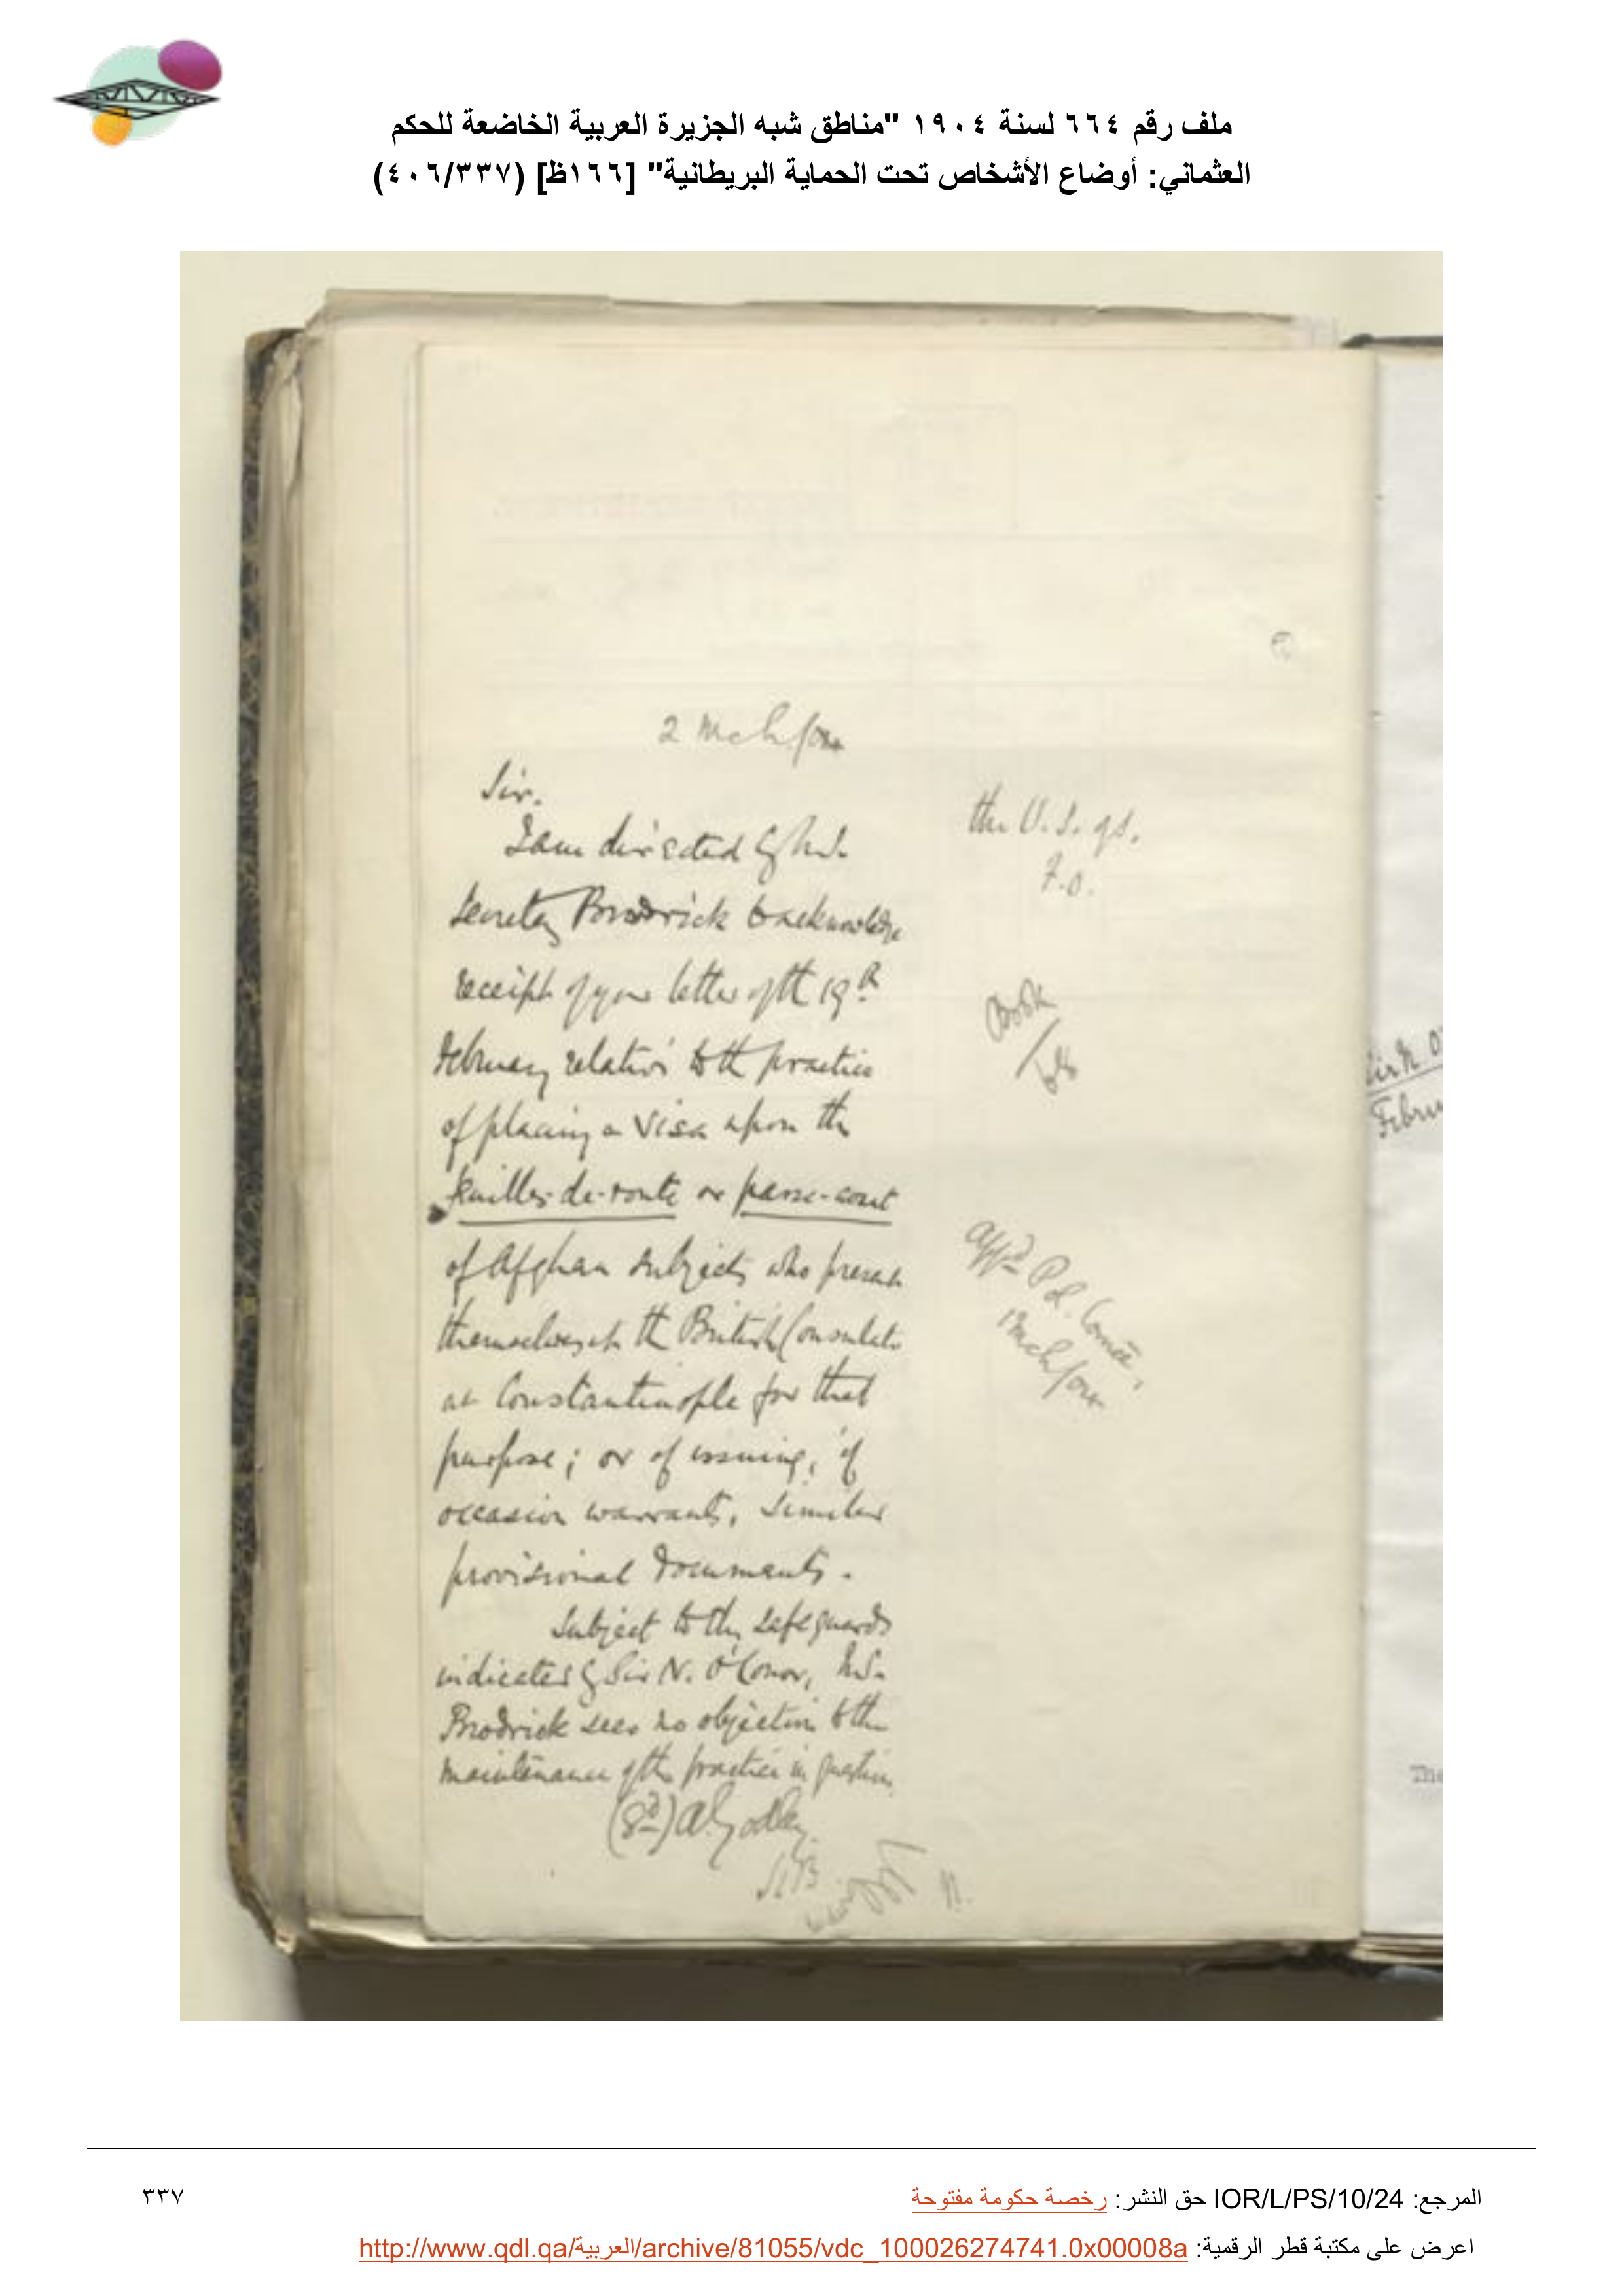 ملف رقم ٦٦٤ لسنة ١٩٠٤ "مناطق شبه الجزيرة العربية الخاضعة للحكم
العثماني: أوضاع الأشخاص تحت الحماية البريطانية" [١٦٦ظ] (٤٠٦/٣٣٧)
2 Mch/04
Sir.
I am directed by Mr.
Secretary Brodrick to acknowledge
receipt of your letter of the 19th
February relative to the practice
of placing a visa upon the
feuilles-de-route or passe-avant
of Afghan subjects who present
themselves at the British Consulate
at Constantinople for that
purpose; or of issuing, if
occasion warrants, similar
provisional documents.
Subject to the safeguards
indicated by Sir N. O'Conor, Mr.
Brodrick sees no objection to the
maintenance of the practice in question
(Sd) A. Godley
the U.S. of S.
F.O.
Book
Appd Pol. Comtee,
1 Mch/04
Sir N. O'
Febru
The
المرجع: IOR/L/PS/10/24 حق النشر: رخصة حكومة مفتوحة
٣٣٧
اعرض على مكتبة قطر الرقمية: http://www.qdl.qa/العربية/archive/81055/vdc_100026274741.0x00008a